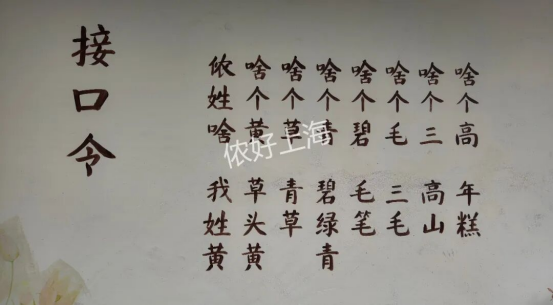 接口令
侬姓啥 我姓黄
啥个黄 草头黄
啥个草 青草
啥个青 碧绿青
啥个碧 毛笔
啥个毛 三毛
啥个三 高山
啥个高 年糕
侬好上海